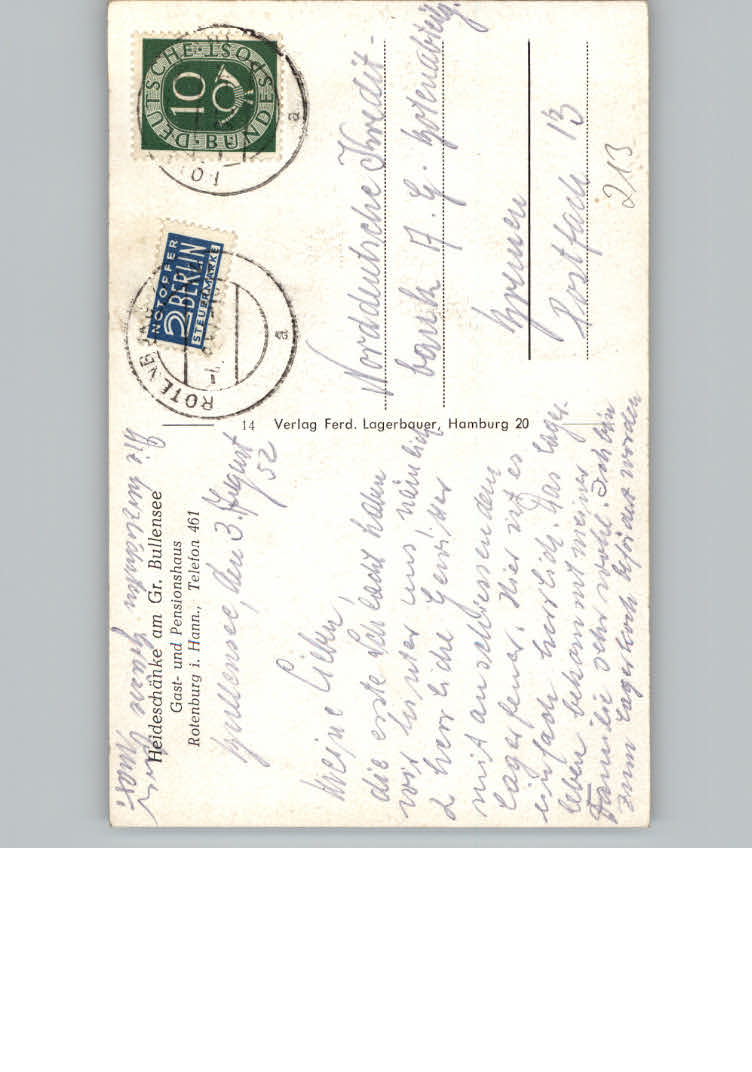 Heideschänke am Gr. Bullensee
Gast- und Pensionshaus
Rotenburg i. Hann., Telefon 461
Bullensee, den 3. August
52
Meine Lieben,
die erste Schlacht haben
wir hinter uns nämlich
2 herrliche Gewitter
mit anschliessendem
Lagerfeuer. Hier ist es
einfach herrlich. Das Lager-
leben bekommt meiner
Familie sehr wohl. Ich bin
zum Lagerkoch befördert worden
Die herzlichsten Grüsse
14 Verlag Ferd. Lagerbauer, Hamburg 20
DEUTSCHE BUNDESPOST
10
NOTOPFER
2 BERLIN
STEUERMARKE
ROTENB
a
a
Norddeutsche Kredit-
bank A. G.
Bremen
Postfach 13
213